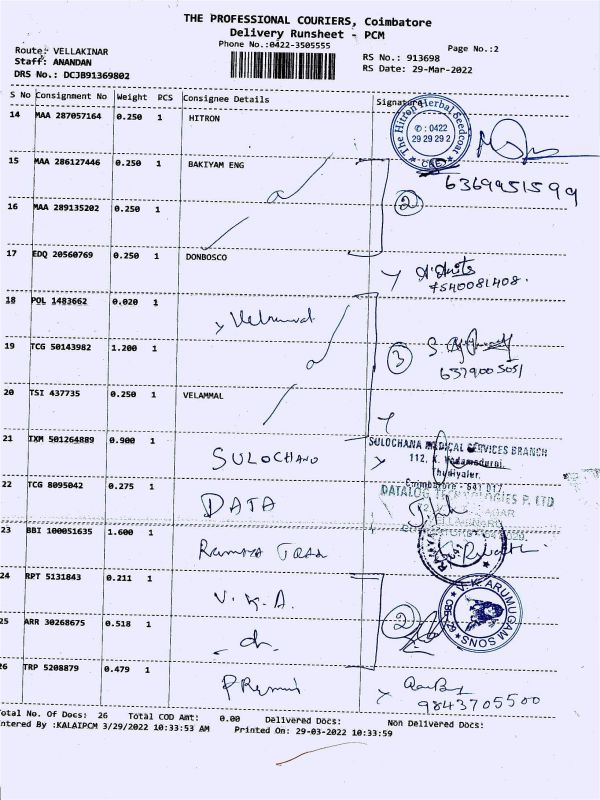 THE PROFESSIONAL COURIERS, Coimbatore
Delivery Runsheet - PCM
Phone No.:0422-3505555
Page No.:2
Route: VELLAKINAR
Staff: ANANDAN
DRS No.: DCJB91369802
RS No.: 913698
RS Date: 29-Mar-2022
S No Consignment No Weight PCS Consignee Details Signature
14 MAA 287057164 0.250 1 HITRON
The Hitron Herbal Seedcoat
✆ : 0422
29 29 29 2
CBE
6369951599
15 MAA 286127446 0.250 1 BAKIYAM ENG
16 MAA 289135202 0.250 1
2
17 EDQ 20560769 0.250 1 DONBOSCO
7540081408.
18 POL 1483662 0.020 1
19 TCG 50143982 1.200 1
3
6379005051
20 TSI 437735 0.250 1 VELAMMAL
21 IXM 501264889 0.900 1 SULOCHANO
SULOCHANA MEDICAL SERVICES BRANCH
112, K. Vadamadurai,
Thudiyaler,
Coimbatore - 641 017
22 TCG 8095042 0.275 1 DATA
DATALOG TECHNOLOGIES P. LTD
23 BBI 100051635 1.600 1
24 RPT 5131843 0.211 1 V.K.A.
V.K. ARUMUGAM SONS
2
25 ARR 30268675 0.518 1 - do.
26 TRP 5208879 0.479 1
9843705500
otal No. Of Docs: 26 Total COD Amt: 0.00 Delivered Docs: Non Delivered Docs:
ntered By :KALAIPCM 3/29/2022 10:33:53 AM Printed On: 29-03-2022 10:33:59